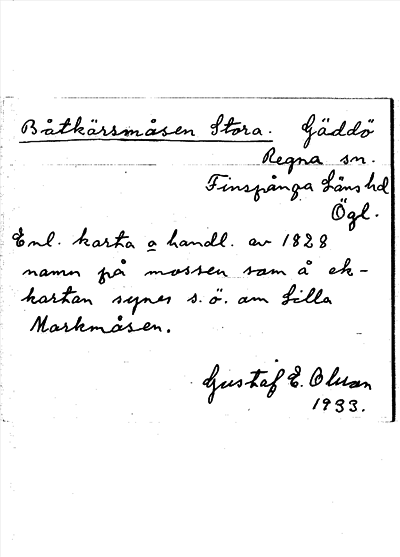 Båtkärrsmåsen Stora. Gäddö
Regna sn.
Finspånga Läns hd
Ögl.
Enl. karta o handl. av 1828
namn på mossen som å ek-
kartan synes s.ö. om Lilla
Markmåsen.
Gustaf E. Olsson
1933.